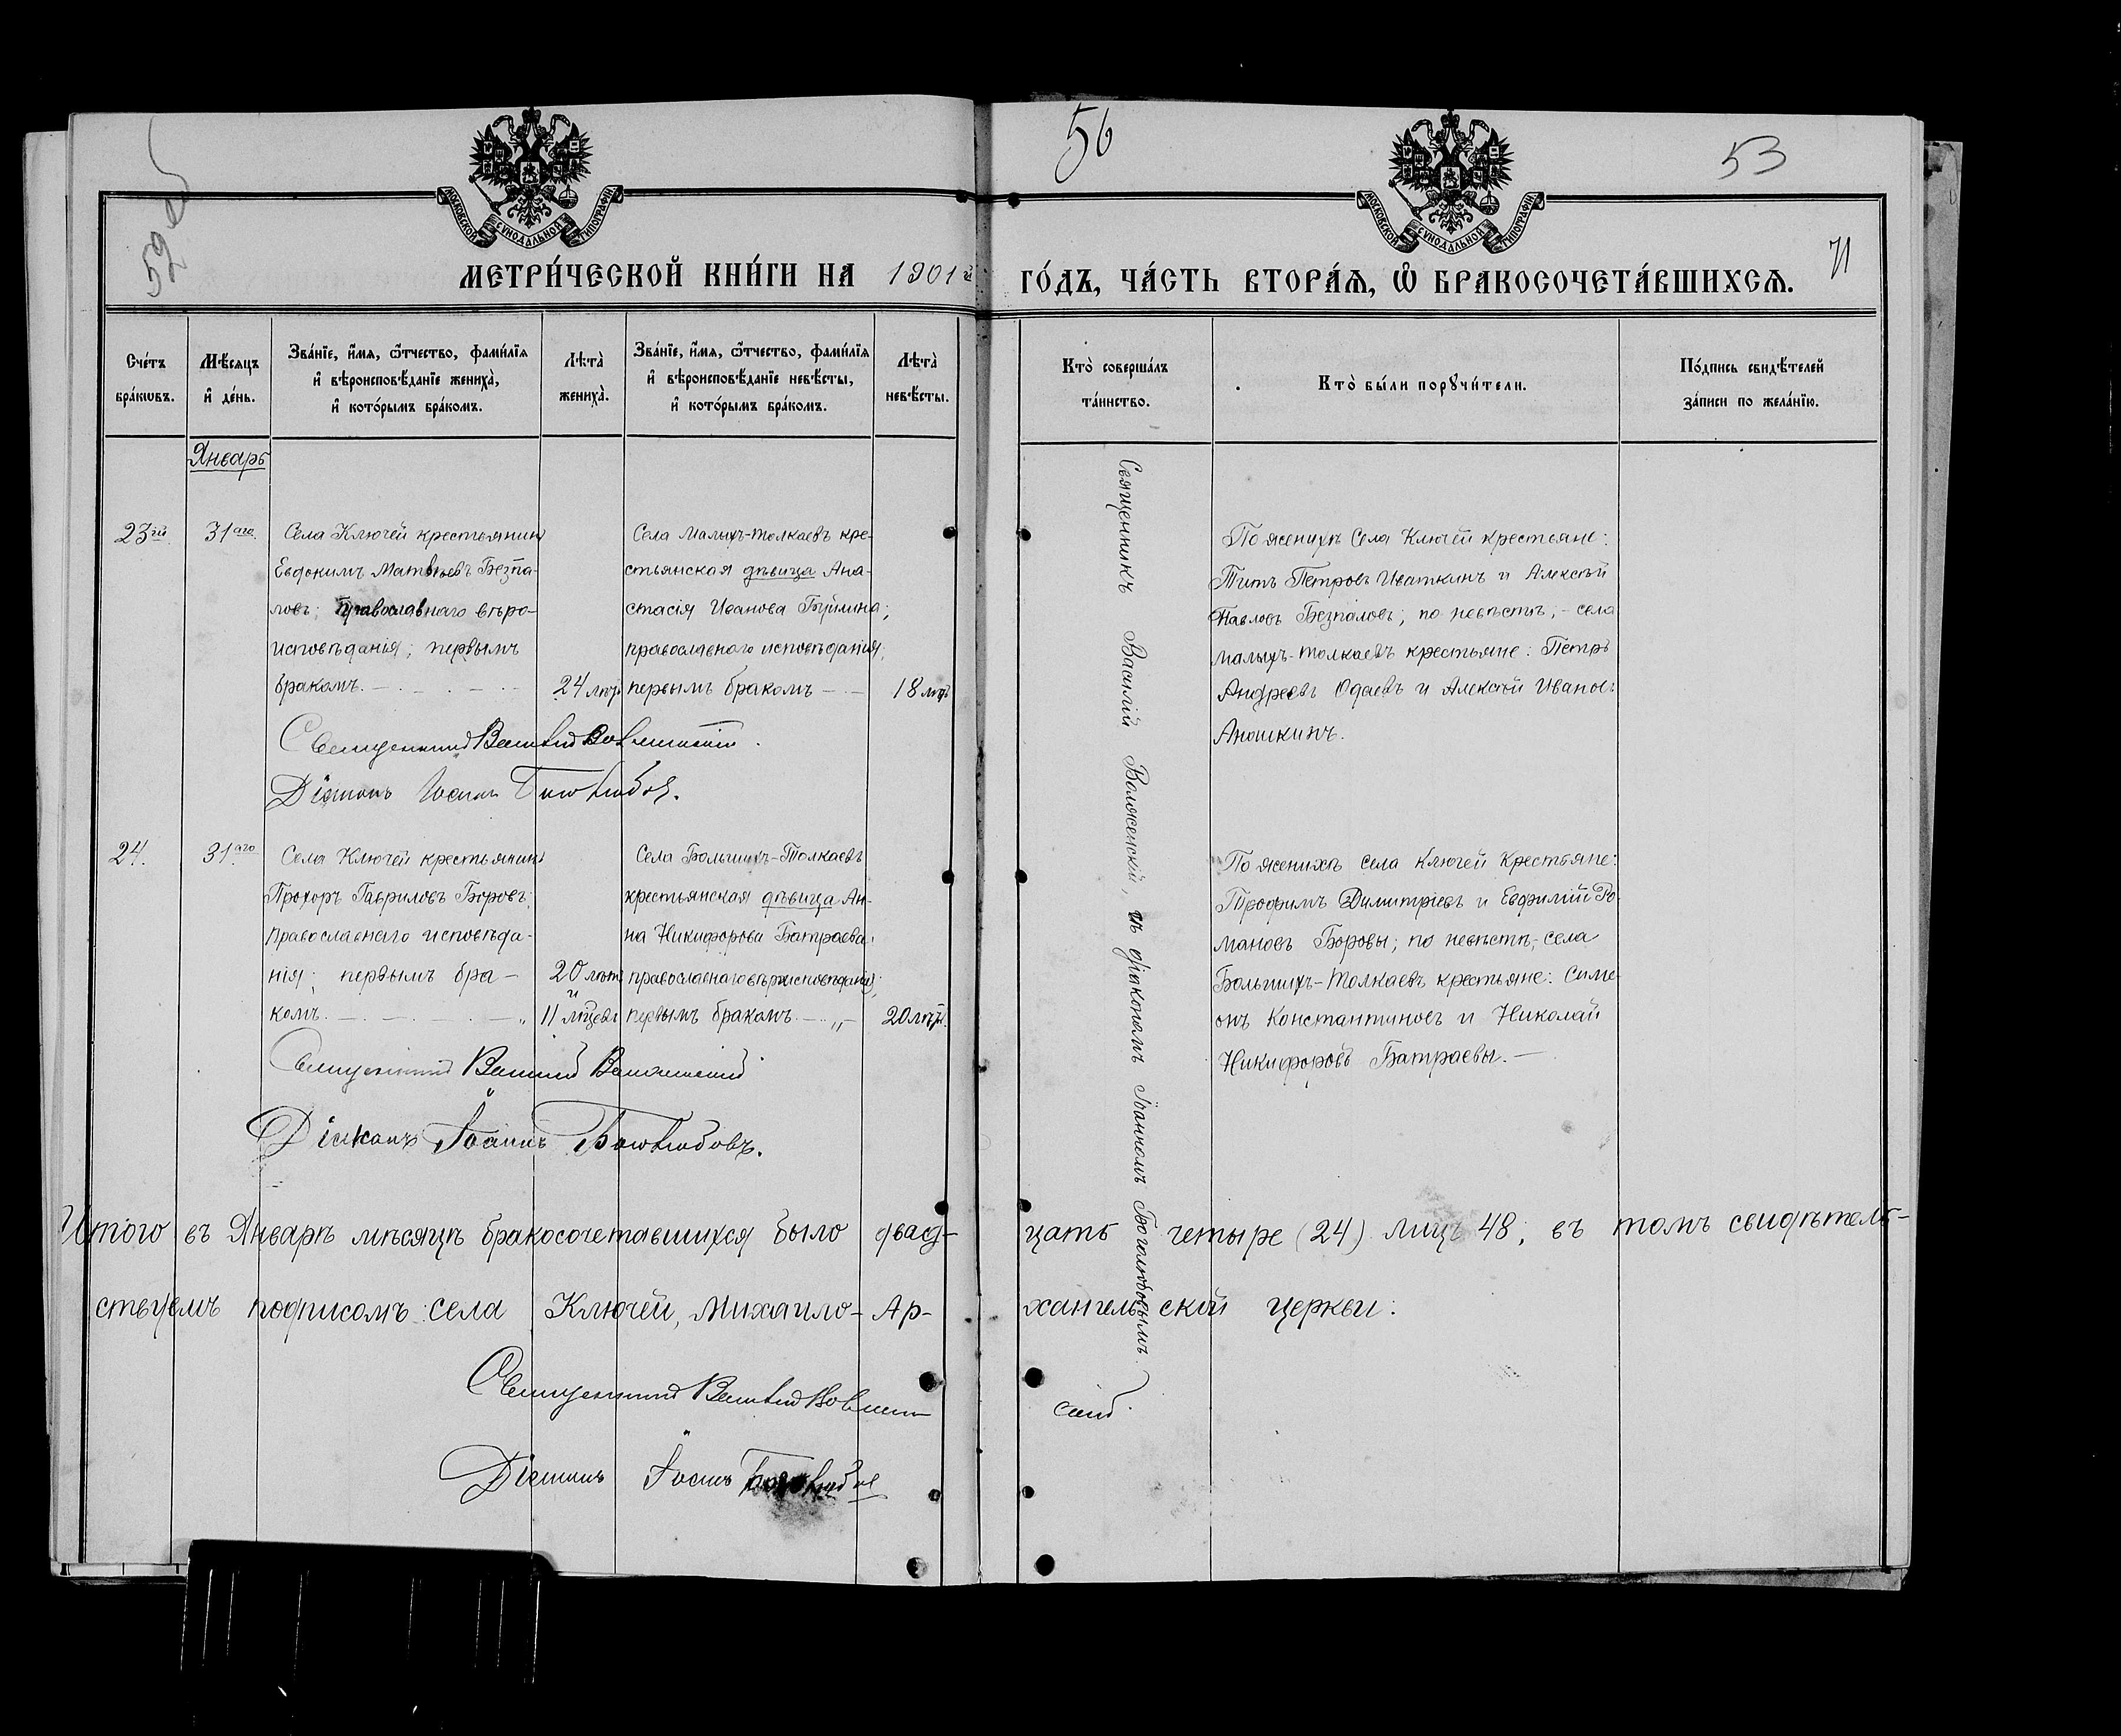 52 об
56
53
71
МОСКОВСКОЙ СУНОДАЛЬНОЙ ТИПОГРАФІИ
МОСКОВСКОЙ СУНОДАЛЬНОЙ ТИПОГРАФІИ
МЕТРИ́ЧЕСКОЙ КНИ́ГИ НА 1901й ГО́ДЪ, ЧА́СТЬ ВТОРА́Ѧ, Ѽ БРАКОСОЧЕТА́ВШИХСѦ.
Сче́тъ
бра́кѡвъ.
Мѣ́сяцъ
и҆ де́нь.
Зва́нїе, и҆́мя, ѻ҆́тчество, фами́лїя
и҆ вѣроисповѣ́данїе жениха̀,
и҆ кото́рымъ бра́комъ.
Лѣта̀
жениха̀.
Зва́нїе, и҆́мя, ѻ҆́тчество, фами́лїя
и҆ вѣроисповѣ́данїе невѣ́сты,
и҆ кото́рымъ бра́комъ.
Лѣта̀
невѣ́сты.
Кто̀ соверша́лъ
та́инство.
Кто̀ бы́ли порꙋчи́тели.
По́дпись свидѣ́телей
за́писи по жела́нїю.
Январь
23й
31аго
Села Ключей крестьянинъ
Евдокимъ Матвѣевъ Безпа-
ловъ; православнаго вѣро-
исповѣданія; первымъ
бракомъ.
24 лѣтъ
Села Малыхъ-Толкаевъ кре-
стьянская дѣвица Ана-
стасія Иванова
православнаго исповѣданія;
первымъ бракомъ
18 лѣтъ
По женихѣ Села Ключей крестьяне:
Титъ Петровъ Иваткинъ и Алексѣй
Павловъ Безпаловъ; по невѣстѣ, - села
Малыхъ-Толкаевъ крестьяне: Петръ
Андреевъ Одаевъ и Алексѣй Ивановъ
Аношкинъ.
Священникъ Василій Воложенскій.
Діаконъ Іоаннъ Боголюбовъ.
24.
31аго
Села Ключей крестьянинъ
Прохоръ Гавриловъ Боровъ;
православнаго исповѣда-
нія; первымъ бра-
комъ.
20 лѣтъ
и
11 мѣсцевъ
Села Большихъ-Толкаевъ
крестьянская дѣвица Ан-
на Никифорова Батраева;
православнаго вѣроисповѣданія;
первымъ бракомъ
20 лѣтъ.
По женихѣ села Ключей крестьяне:
Трофимъ Димитріевъ и Евфимій Ро-
мановъ Боровы; по невѣстѣ, - села
Большихъ-Толкаевъ крестьяне: Симе-
онъ Константиновъ и Николай
Никифоровъ Батраевы.
Священникъ Василій Воложенскій
Діаконъ Іоаннъ Боголюбовъ.
Священникъ Василій Воложенскій, съ діакономъ Іоанномъ Боголюбовымъ.
Итого въ Январѣ мѣсяцѣ бракосочетавшихся было двад-цать четыре (24) лицъ 48; въ томъ свидѣтель-
ствуемъ подписомъ: села Ключей, Михаило-Ар-хангельской церкви:
Священникъ Василій Воложенскій.
Діаконъ Іоаннъ Боголюбовъ